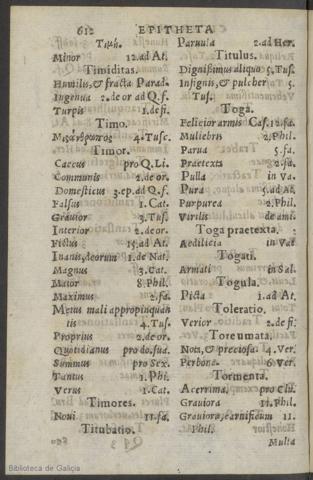 612 EPITHETA
Τιμή.
Minor 12.ad At.
Timiditas.
Humilis, & fracta Parad.
Ingenua 2.de or ad Q.f.
Turpis 1.de fi.
Timo.
Μισάνθρωπος 4.Tusc.
Timor.
Caecus pro Q.Li.
Communis 2.de or.
Domesticus 3.ep.ad Q.f.
Falsus 1.Cat.
Gravior 3.Tus.
Interior 2.de or.
Fictus 15.ad At.
Inanis, deorum 1.de Nat.
Magnus 3.Cat.
Maior 8.Phil.
Maximus 2.fa.
Metus mali appropinquan
tis 4.Tus.
Proprius 2.de or.
Quotidianus pro do.sua.
Summus pro Sex.
Tantus 1.Phi.
Verus 1.Cat.
Timores.
Noui 11.fa.
Titubatio.
Paruula 2.ad Her.
Titulus.
Dignissimus aliquo 5.Tus.
Insignis, & pulcher 5.
Tus.
Toga.
Felicior armis Cas.12.fa.
Muliebris 2.Phil.
Parua 5.fa.
Praetexta 2.fa.
Pulla in Va.
Pura 5.ad At.
Purpurea 2.Phil.
Virilis de ami.
Toga praetexta.
Aedilicia in Vat
Togati.
Armati in Sal.
Togula.
Picta 1.ad At.
Toleratio.
Verior 2.de fi.
Toreumata.
Nota, & preciosa 4.Ver.
Perbona 6.Ver.
Tormenta.
Acerrima pro Clu.
Grauiora 11.Phil.
Grauiora, carnificum 11.
Phil.
Multa
Biblioteca de Galicia